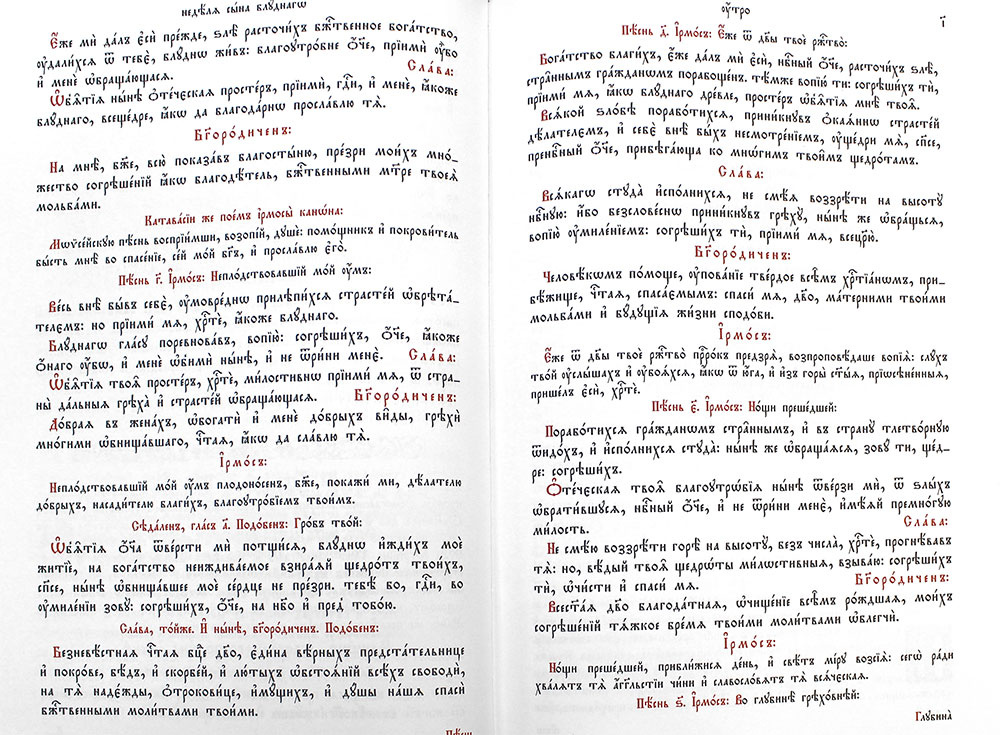 недѣ́лѧ сы́на блꙋ́днагѡ
Є҆́же мѝ да́лъ є҆сѝ пре́жде, ѕлѣ̀ расточи́хъ бж҃твенное бога́тство,
ᲂу҆дали́хсѧ ѿ тебє̀, блꙋ́днѡ жи́въ: благоꙋтро́бне ѻ҆́ч҃е, прїимѝ ᲂу҆̀бо
и҆ менѐ ѡ҆браща́ющасѧ. Сла́ва:
Ѡ҆б̾ѧ̑тїѧ ны́нѣ ѻ҆те́ческаѧ просте́ръ, прїимѝ, гдⷭ҇и, и҆ менѐ, ꙗ҆́коже
блꙋ́днаго, всеще́дре, ꙗ҆́кѡ да благода́рнѡ прославлю̀ тѧ̀.
Бг҃оро́диченъ:
На мнѣ̀, бж҃е, всю̀ показа́въ благосты́ню, пре́зри мои́хъ мно́-
жество согрѣше́нїй ꙗ҆́кѡ благодѣ́тель, бж҃твенными мт҃ре твоеѧ̀
мольба́ми.
Катава́сїи же пое́мъ і҆рмосы̀ кано́на:
Мѡѷсе́йскꙋю пѣ́снь воспрїи́мши, возопі́й, дꙋшѐ: помо́щникъ и҆ покрови́тель
бы́сть мнѣ̀ во спасе́нїе, се́й мо́й бг҃ъ, и҆ просла́влю є҆го̀.
Пѣ́снь г҃. І҆рмо́съ: Неплодствовавшїй мо́й ᲂу҆́мъ:
Ве́сь внѣ̀ бы́въ себє̀, ᲂу҆мовре́днѡ прилѣпи́хсѧ страсте́й ѡ҆брѣта́-
телємъ: но прїими́ мѧ, хрⷭ҇тѐ, ꙗ҆́коже блꙋ́днаго.
Блꙋ́днагѡ гла́сꙋ поревнова́въ, вопїю̀: согрѣши́хъ, ѻ҆́ч҃е, ꙗ҆́коже
ѻ҆́наго ᲂу҆́бѡ, и҆ менѐ ѡ҆бимѝ ны́нѣ, и҆ не ѿри́ни менѐ. Сла́ва:
Ѡ҆б̾ѧ̑тїѧ твоѧ̑ просте́ръ, хрⷭ҇тѐ, ми́лостивнѡ прїими́ мѧ, ѿ стра-
ны̀ да́льныѧ грѣха̀ и҆ страсте́й ѡ҆браща́ющасѧ. Бг҃оро́диченъ:
До́браѧ въ жена́хъ, ѡ҆богатѝ и҆ менѐ до́брыхъ ви̑ды, грѣхѝ
мно́гими ѡ҆бнища́вшаго, чтⷭ҇аѧ, ꙗ҆́кѡ да сла́влю тѧ̀.
І҆рмо́съ:
Неплодствовавшїй мо́й ᲂу҆́мъ плодоно́сенъ, бж҃е, покажи́ ми, дѣ́лателю
до́брыхъ, насади́телю благи́хъ, благоꙋтро́бїемъ твои́мъ.
Сѣда́ленъ, гла́съ а҃. Подо́бенъ: Гро́бъ тво́й:
Ѡ҆б̾ѧ̑тїѧ ѻ҆́ч҃а ѿве́рсти мѝ потщи́сѧ, блꙋ́днѡ и҆жди́хъ моѐ
житїѐ, на бога́тство неиждива́емое взира́ѧй щедро́тъ твои́хъ,
сп҃се, ны́нѣ ѡ҆бнища́вшее моѐ се́рдце не пре́зри. тебѣ́ бо, гдⷭ҇и, во
ᲂу҆миле́нїи зовꙋ̀: согрѣши́хъ, ѻ҆́ч҃е, на нб҃о и҆ пред̾ тобо́ю.
Сла́ва, то́йже. И҆ ны́нѣ, бг҃оро́диченъ. Подо́бенъ:
Безневѣ́стнаѧ чтⷭ҇аѧ бцⷣе дв҃о, є҆ди́на вѣ́рныхъ предста́тельнице
и҆ покро́ве, бѣ́дъ, и҆ скорбе́й, и҆ лю́тыхъ ѡ҆бстоѧ́нїй всѣ́хъ свободѝ,
на тѧ̀ наде́жды, ѻ҆трокови́це, и҆мꙋ́щихъ, и҆ дꙋ́шы на́шѧ спасѝ
бж҃твенными моли́твами твои́ми.
Пѣ́снь
ᲂу҆́тро
і҃
Пѣ́снь д҃. І҆рмо́съ: Є҆́же ѿ дв҃ы твоѐ ржⷭ҇тво̀:
Бога́тство благи́хъ, є҆́же да́лъ мѝ є҆сѝ, нбⷭ҇ный ѻ҆́ч҃е, расточи́хъ ѕлѣ̀,
стра̑ннымъ гра́жданѡмъ порабоще́нъ. тѣ́мже вопїю́ ти: согрѣши́хъ тѝ,
прїими́ мѧ, ꙗ҆́кѡ блꙋ́днаго дре́вле, просте́ръ ѡ҆б̾ѧ̑тїѧ мнѣ̀ твоѧ̑.
Всѧ́кой ѕло́бѣ порабо́тихсѧ, прини́кнꙋвъ ѻ҆каѧ́нни страсте́й
дѣ́лателємъ, и҆ себє̀ внѣ̀ бы́хъ несмотре́нїемъ, ᲂу҆ще́дри мѧ̀, сп҃се,
пренбⷭ҇ный ѻ҆́ч҃е, прибѣга́юща ко мнѡ́гимъ твои̑мъ щедро́тамъ.
Сла́ва:
Всѧ́кагѡ стꙋда̀ и҆спо́лнихсѧ, не смѣ́ѧ воззрѣ́ти на высотꙋ̀
нбⷭ҇нꙋю: и҆́бо безслове́снѡ прини́кнꙋвъ грѣхꙋ̀, ны́нѣ же ѡ҆бра́щьсѧ,
вопїю̀ ᲂу҆миле́нїемъ: согрѣши́хъ тѝ, прїими́ мѧ, всецр҃ю̀.
Бг҃оро́диченъ:
Человѣ́кѡмъ по́моще, ᲂу҆пова́нїе тве́рдое всѣ̑мъ хрⷭ҇тїа́нѡмъ, при-
бѣ́жище, чтⷭ҇аѧ, спаса́ємымъ: спаси́ мѧ, дв҃о, ма́терними твои́ми
мольба́ми и҆ бꙋ́дꙋщїѧ жи́зни сподо́би.
І҆рмо́съ:
Є҆́же ѿ дв҃ы твоѐ ржⷭ҇тво̀ прⷪ҇ро́къ предзрѧ̀, возпроповѣ́даше вопїѧ̀: слꙋ́хъ
тво́й ᲂу҆слы́шахъ и҆ ᲂу҆боѧ́хсѧ, ꙗ҆́кѡ ѿ ю҆́га, и҆ и҆з̾ горы̀ ст҃ы́ѧ, прїѡсѣне́нныѧ,
прише́лъ є҆сѝ, хрⷭ҇тѐ.
Пѣ́снь є҃. І҆рмо́съ: Но́щи преше́дшей:
Порабо́тихсѧ гра́жданѡмъ стра̑ннымъ, и҆ въ странꙋ̀ тлетво́рнꙋю
ѿидо́хъ, и҆ и҆спо́лнихсѧ стꙋда̀: ны́нѣ же ѡ҆браща́ѧсѧ, зовꙋ́ ти, ще́д-
ре: согрѣши́хъ.
Ѻ҆те́ческаѧ твоѧ̑ благоꙋтрѡ́бїѧ ны́нѣ ѿве́рзи мѝ, ѿ ѕлы́хъ
ѡ҆брати́вшꙋсѧ, нбⷭ҇ный ѻ҆́ч҃е, и҆ не ѿри́ни менѐ, и҆мѣ́ѧй премно́гꙋю
ми́лость. Сла́ва:
Не смѣ́ю воззрѣ́ти горѣ̀ на высотꙋ̀, без̾ числа̀, хрⷭ҇тѐ, прогнѣ́вавъ
тѧ̀: но, вѣ́дый твоѧ̑ щедрѡ́ты ми́лостивныѧ, взыва́ю: согрѣши́хъ
тѝ, ѡ҆чи́сти и҆ спаси́ мѧ. Бг҃оро́диченъ:
Всест҃а́ѧ дв҃о благода́тнаѧ, ѡ҆чище́нїе всѣ̑мъ ро́ждшаѧ, мои́хъ
согрѣше́нїй тѧ́жкое бре́мѧ твои́ми моли́твами ѡ҆блегчѝ.
І҆рмо́съ:
Но́щи преше́дшей, прибли́жисѧ де́нь, и҆ свѣ́тъ мі́рꙋ возсїѧ̀: сегѡ̀ ра́ди
хва́лѧтъ тѧ̀ а҆́гг҃льстїи чи́ни и҆ славосло́вѧтъ тѧ̀ всѧ́чєскаѧ.
Пѣ́снь ѕ҃. І҆рмо́съ: Во глꙋбинѣ̀ грѣхо́внѣй:
Глꙋбина̀